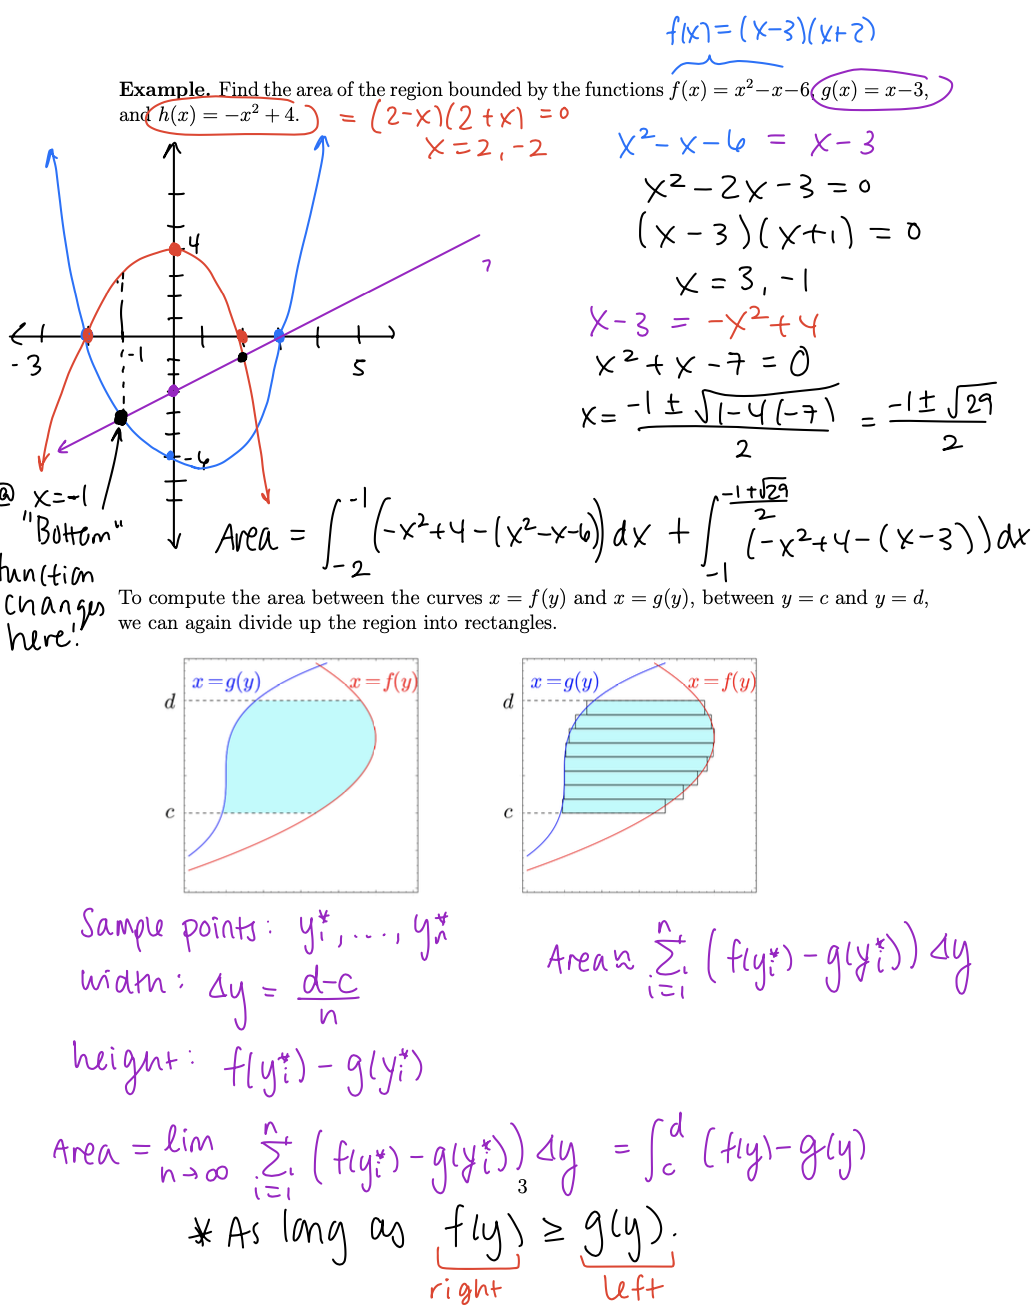 f(x) = (x-3)(x+2)
Example. Find the area of the region bounded by the functions f(x) = x² − x − 6, g(x) = x − 3,
and h(x) = −x² + 4. = (2-x)(2+x) = 0
x = 2, -2
x² - x - 6 = x - 3
x² - 2x - 3 = 0
(x - 3)(x+1) = 0
x = 3, -1
x - 3 = -x² + 4
x² + x - 7 = 0
x = (-1 ± √(1-4(-7)))/2 = (-1 ± √29)/2
4
-3 -1 5
-6
@ x=-1
"Bottom"
function
changes
here!
Area = ∫_{-2}^{-1} (-x²+4-(x²-x-6)) dx + ∫_{-1}^{(-1+√29)/2} (-x²+4-(x-3)) dx
To compute the area between the curves x = f(y) and x = g(y), between y = c and y = d,
we can again divide up the region into rectangles.
x = g(y) x = f(y)
d
c
x = g(y) x = f(y)
d
c
Sample points: y₁*, ..., yₙ*
width: Δy = (d-c)/n
height: f(yᵢ*) - g(yᵢ*)
Area ≈ Σ_{i=1}^{n} (f(yᵢ*) - g(yᵢ*)) Δy
Area = lim_{n→∞} Σ_{i=1}^{n} (f(yᵢ*) - g(yᵢ*)) Δy = ∫_c^d (f(y) - g(y)
3
* As long as f(y) ≥ g(y).
right left